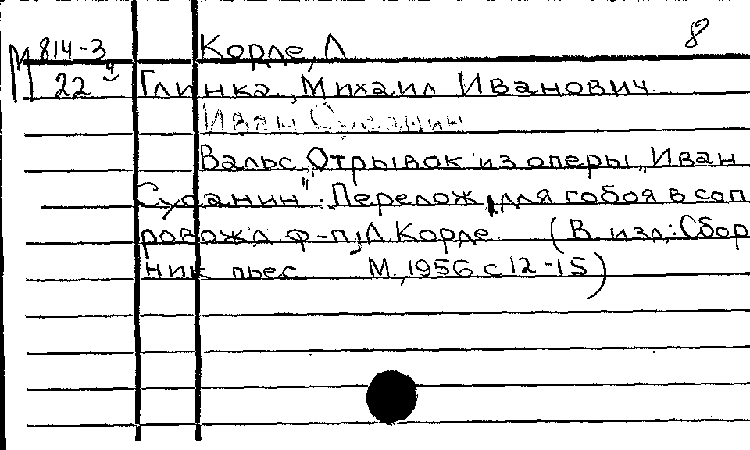 М 814-3 Корде, Л 8
22 Глинка, Михаил Иванович
Иван Сусанин
Вальс. Отрывок из оперы „Иван
Сусанин". Перелож. для гобоя в соп
ровожд ф-п. Л. Корде (В изд.: Сбор
ник пьес М., 1956 с 12-15)